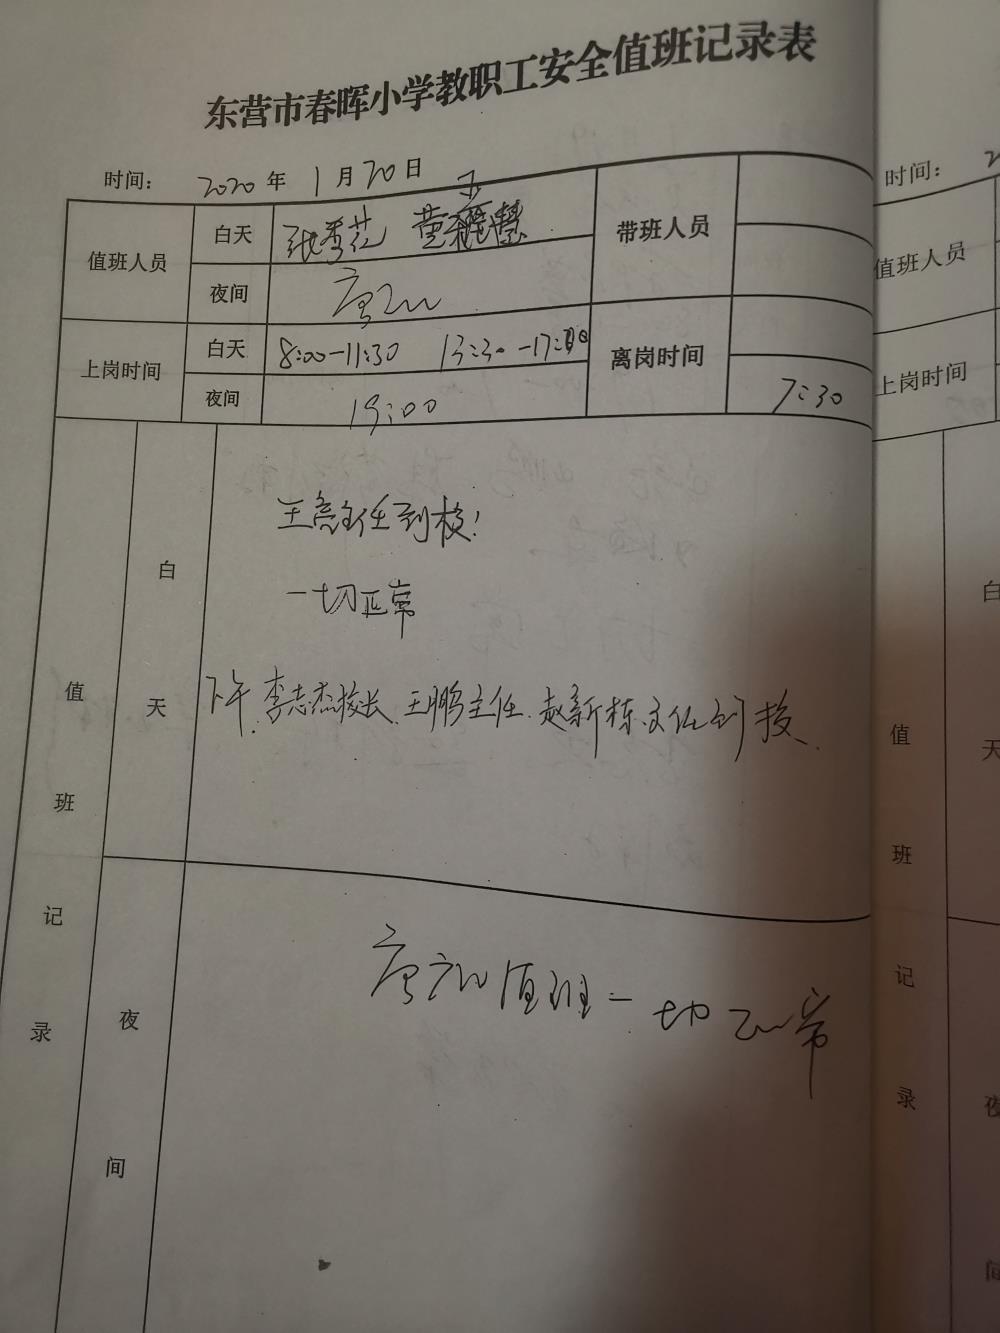 东营市春晖小学教职工安全值班记录表
时间: 2020 年 1 月 20 日
值班人员 白天 张秀花 董 慧 带班人员
玉
夜间
上岗时间 白天 8:00-11:30 13:30-17:00 离岗时间
夜间 19:00 7:30
值班记录
白天
王亮主任到校!
一切正常
下午.李志杰校长、王鹏主任、赵新栋主任到校、
夜间
值班一切正常
时间: 2
值班人员
上岗时间
值班记录
白天
夜间